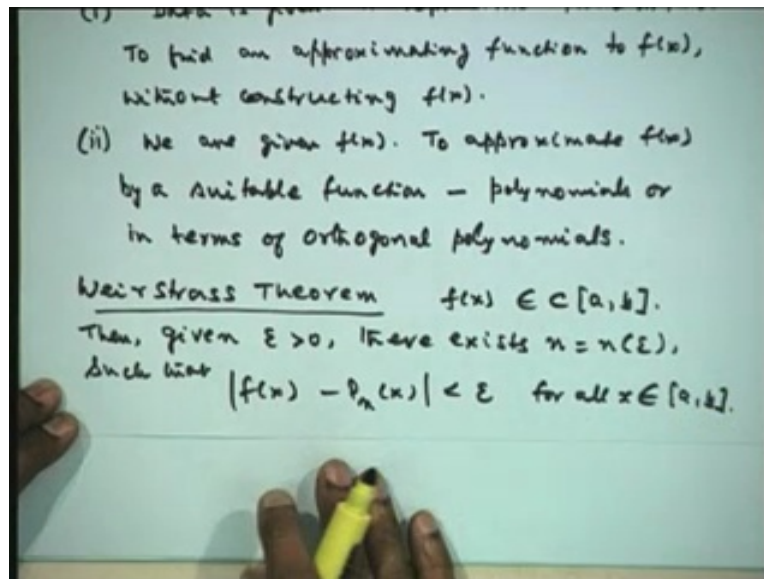 (i) Data is given
To find an approximating function to f(x),
without constructing f(x).
(ii) We are given f(x). To approximate f(x)
by a suitable function – polynomials or
in terms of orthogonal polynomials.
Weirstrass Theorem f(x) ∈ C[a,b].
Then, given ε>0, there exists n = n(ε),
Such that |f(x) – Pₙ(x)| < ε for all x ∈ [a,b].